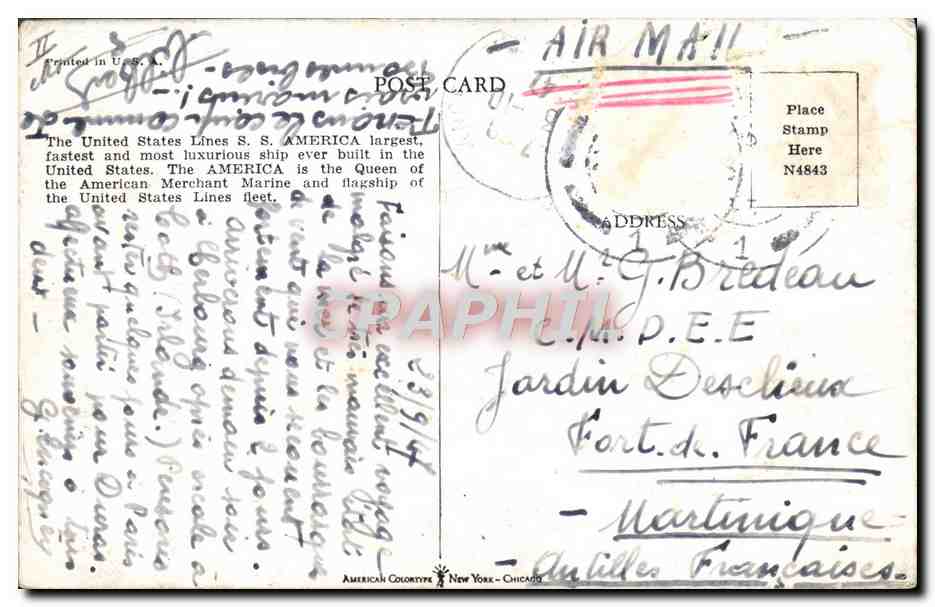 Printed in U. S. A.
POST CARD
The United States Lines S. S. AMERICA largest,
fastest and most luxurious ship ever built in the
United States. The AMERICA is the Queen of
the American Merchant Marine and flagship of
the United States Lines fleet.
23/9/47
Faisons un excellent voyage
malgré le très mauvais état
de la mer et les bourrasques
de vent qui nous secouent
fortement depuis 2 jours.
Arriverons demain soir
à Cherbourg après escale à
Cobh (Irlande.) Pensons
rester quelques jours à Paris
avant partir pour
affectueux souvenirs à tous
deux -
Tenons le coup comme de
vrais marins! -
Bonnes bises -
- AIR MAIL -
Place
Stamp
Here
N4843
ADDRESS
Mme et Mr G. Bredeau
C.M.D.E.E
Jardin Desclieux
Fort.de.France
- Martinique -
- Antilles Françaises.
AMERICAN COLORTYPE NEW YORK - CHICAGO
CPAPHIL